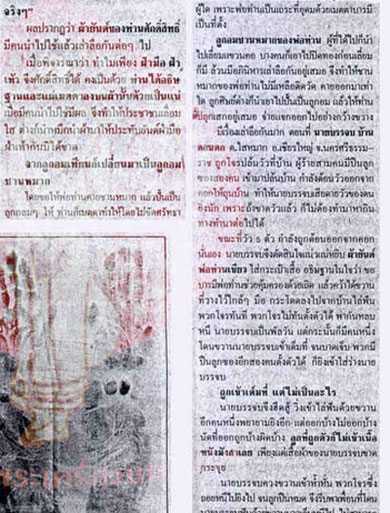 จริงๆ"
ผลปรากฏว่า ผ้ายันต์ของท่านศักดิ์สิทธิ์
มีคนนำไปใช้แล้วเล่าลือกันต่อๆ ไป
เมื่อพิจารณาว่า ทำไมเพียง ฝ่ามือ ฝ่า
เท้า จึงศักดิ์สิทธิ์ได้ คงเป็นด้วย ท่านได้อธิษ
ฐานและแผ่เมตตาลงบนผ้านั้นด้วยเป็นแน่
เมื่อมีคนนำไปใช้มีผล จึงทำให้ประชาชนเลื่อม
ใส ต่างก็นำหมึกมาฝ่า
จากลูกอมเทียนก็เปลี่ยนมาเป็นลูกอม
ชานหมาก
โดยขอให้พ่อท่านคายชานหมาก แล้วปั้นเป็น
ลูกกลมๆ ให้ ท่านก็เมตตาทำให้โดยไม่ขัดศรัทธา
ผู้ใด เพราะพ่อท่านเป็นเถระที่อุดมด้วยเมตตาบารมี
เป็นที่ตั้ง
ลูกอมชานหมากของพ่อท่าน ผู้ที่ได้ไปก็นำ
ไปเลี่ยมแขวนคอ บางคนก็เอาไปปิดทองก่อนเลี่ยม
ก็มี ล้วนมีอภินิหารเล่าลือกันอยู่เสมอ จึงทำให้ชาน
หมากของพ่อท่านไม่มีเหลือติดวัด คายออกมาเท่า
ใด ลูกศิษย์ต่างก็นำเอาไปปั้นเป็นลูกอม แล้วให้ท่าน
ปลุกเสกอยู่เสมอ จ่ายแจกออกไปอย่างกว้างขวาง
มีเรื่องเล่าลือกันมาก ตอนที่ นายบรรจบ บ้าน
ต.ไสหมาก อ.เชียรใหญ่ จ.นครศรีธรรม-
ราช ถูกโจรปล้นวัวที่บ้าน ผู้ร้ายสามคนมีปืนลูก
ซองสองคน เข้ามาปล้นบ้าน กำลังต้อนวัวออกจาก
คอกใต้ถุนบ้าน ทำให้นายบรรจบเสียดายวัวของตน
ยิ่งนัก เพราะถ้าขาดวัวแล้ว ก็ไม่ต้องทำมาหากิน
ทางทำนาต่อไปได้
ขณะที่วัว 5 ตัว กำลังถูกต้อนออกจากคอก
นั่นเอง นายบรรจบจึงตัดสินใจแน่วแน่หยิบ ผ้ายันต์
พ่อท่านเขียว ใส่กระเป๋าเสื้อ อธิษฐานในใจว่า ขอ
บารมีพ่อท่านช่วยคุ้มครองด้วยเถิด แล้วคว้าได้ขวาน
ที่วางไว้ใกล้ๆ มือ กระโดดลงไปจากบ้านไล่ฟัน
พวกโจรทันที พวกโจรไม่ทันตั้งตัวได้ พากันหลบ
หนี นายบรรจบเป็นพัลวัน แต่กระนั้นก็มีคนหนึ่ง
โดนขวานนายบรรจบเข้าเต็มที่ จนบาดเจ็บ พวกมี
ปืนลูกซองอีกสองคนตั้งตัวได้ ก็ยิงเข้าใส่ร่างนาย
บรรจบ
ถูกเข้าเต็มที่ แต่ไม่เป็นอะไร
นายบรรจบจึงฮึดสู้ วิ่งเข้าไล่ฟันด้วยขวาน
อีกคนหนึ่งพยายามยิงอีก แต่ออกบ้างไม่ออกบ้าง
นัดที่ออกถูกบ้างผิดบ้าง ลูกที่ถูกตัวก็ไม่เข้าเนื้อ
หนังมังสาเลย เพียงแต่เสื้อผ้าของนายบรรจบขาด
กระจุย
นายบรรจบควงขวานเข้าห้ำหั่น พวกโจรซึ่ง
ถอยหนีไปยิงไป จนลูกปืนหมด จึงรีบพาเพื่อนที่โดน